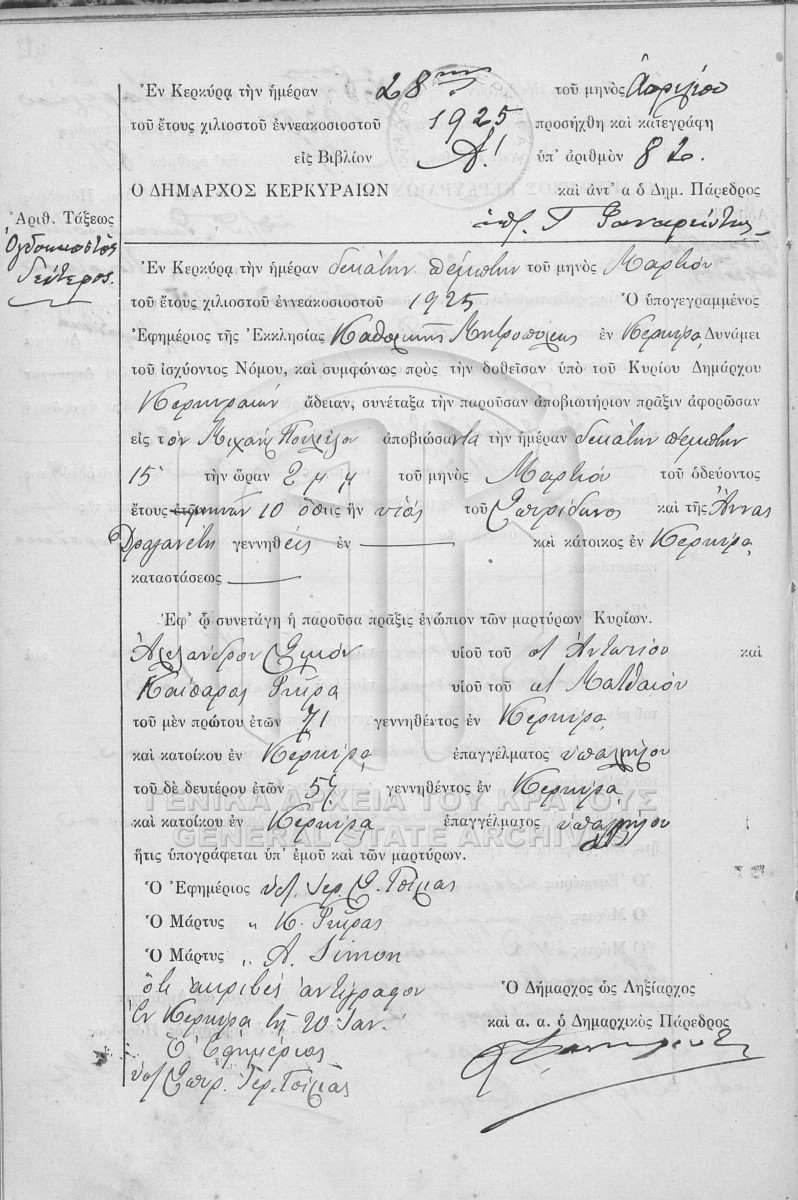 Ἐν Κερκύρᾳ τὴν ἡμέραν 28ην τοῦ μηνὸς Ἀπριλίου
τοῦ ἔτους χιλιοστοῦ ἐννεακοσιοστοῦ 1925 προσήχθη καὶ κατεγράφη
εἰς Βιβλίον Α! ὑπ' ἀριθμὸν 82.
Ο ΔΗΜΑΡΧΟΣ ΚΕΡΚΥΡΑΙΩΝ καὶ ἀντ' α ὁ Δημ. Πάρεδρος
ὑπ. Γ Φαναριώτης
Ἀριθ. Τάξεως
Ὀγδοηκοστὸς
δεύτερος.
Ἐν Κερκύρᾳ τὴν ἡμέραν δεκάτην πέμπτην τοῦ μηνὸς Μαρτίου
τοῦ ἔτους χιλιοστοῦ ἐννεακοσιοστοῦ 1925 Ὁ ὑπογεγραμμένος
Ἐφημέριος τῆς Ἐκκλησίας Καθολικῆς Μητροπόλεως ἐν Κερκύρᾳ Δυνάμει
τοῦ ἰσχύοντος Νόμου, καὶ συμφώνως πρὸς τὴν δοθεῖσαν ὑπὸ τοῦ Κυρίου Δημάρχου
Κερκυραίων ἄδειαν, συνέταξα τὴν παροῦσαν ἀποβιωτήριον πρᾶξιν ἀφορῶσαν
εἰς τὸν Μιχαὴλ ἀποβιώσαντα τὴν ἡμέραν δεκάτην πέμπτην
15 τὴν ὥραν 2 μ μ τοῦ μηνὸς Μαρτίου τοῦ ὁδεύοντος
ἔτους 10 ὅστις ἦν υἱὸς τοῦ Σπυρίδωνος καὶ τῆς Ἄννας
γεννηθείς ἐν καὶ κάτοικος ἐν Κερκύρᾳ
καταστάσεως
Ἐφ' ᾧ συνετάγη ἡ παροῦσα πρᾶξις ἐνώπιον τῶν μαρτύρων Κυρίων.
Ἀλεξάνδρου Σιμόν υἱοῦ τοῦ Ἀντωνίου καὶ
Καίσαρος υἱοῦ τοῦ Ματθαίου
τοῦ μὲν πρώτου ἐτῶν 71 γεννηθέντος ἐν Κερκύρᾳ
καὶ κατοίκου ἐν Κερκύρᾳ ἐπαγγέλματος ὑπαλλήλου
τοῦ δὲ δευτέρου ἐτῶν 57 γεννηθέντος ἐν Κερκύρᾳ
καὶ κατοίκου ἐν Κερκύρᾳ ἐπαγγέλματος ὑπαλλήλου
ΓΕΝΙΚΑ ΑΡΧΕΙΑ ΤΟΥ ΚΡΑΤΟΥΣ
GENERAL STATE ARCHIVES
ἥτις ὑπογράφεται ὑπ' ἐμοῦ καὶ τῶν μαρτύρων.
Ὁ Ἐφημέριος ὑπ. Ἱερ. Σ. Τσίμας
Ὁ Μάρτυς „ Κ.
Ὁ Μάρτυς „ A. Simon
ὅτι ἀκριβὲς ἀντίγραφον
Ἐν Κερκύρᾳ τῇ 20 Ἰαν.
Ὁ Ἐφημέριος
ὑπ. Σπυρ. Ἱερ. Τσίμας
Ὁ Δήμαρχος ὡς Ληξίαρχος
καὶ α. α. ὁ Δημαρχικὸς Πάρεδρος